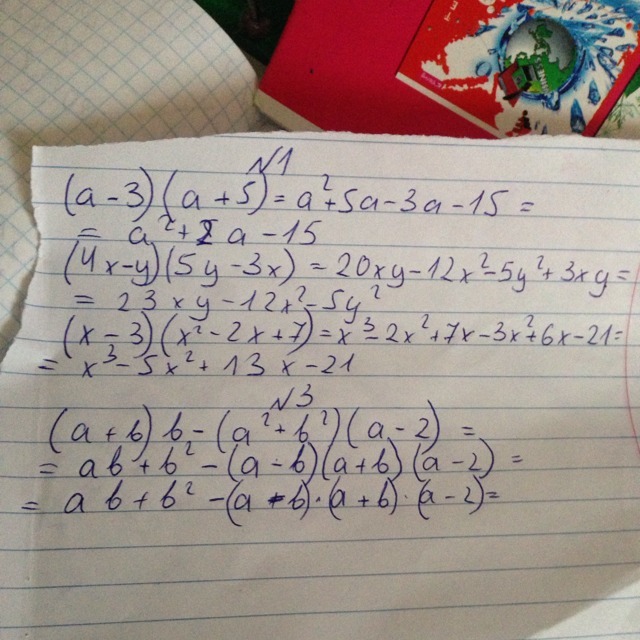 №1
(a-3)(a+5)=a²+5a-3a-15=
= a²+2a-15
(4x-y)(5y-3x) = 20xy-12x²-5y²+3xy=
= 23xy-12x²-5y²
(x-3)(x²-2x+7)=x³-2x²+7x-3x²+6x-21=
= x³-5x²+13x-21
№3
(a+b)b-(a²+b²)(a-2) =
= ab+b²-(a-b)(a+b)(a-2) =
= ab+b²-(a-b)·(a+b)·(a-2)=